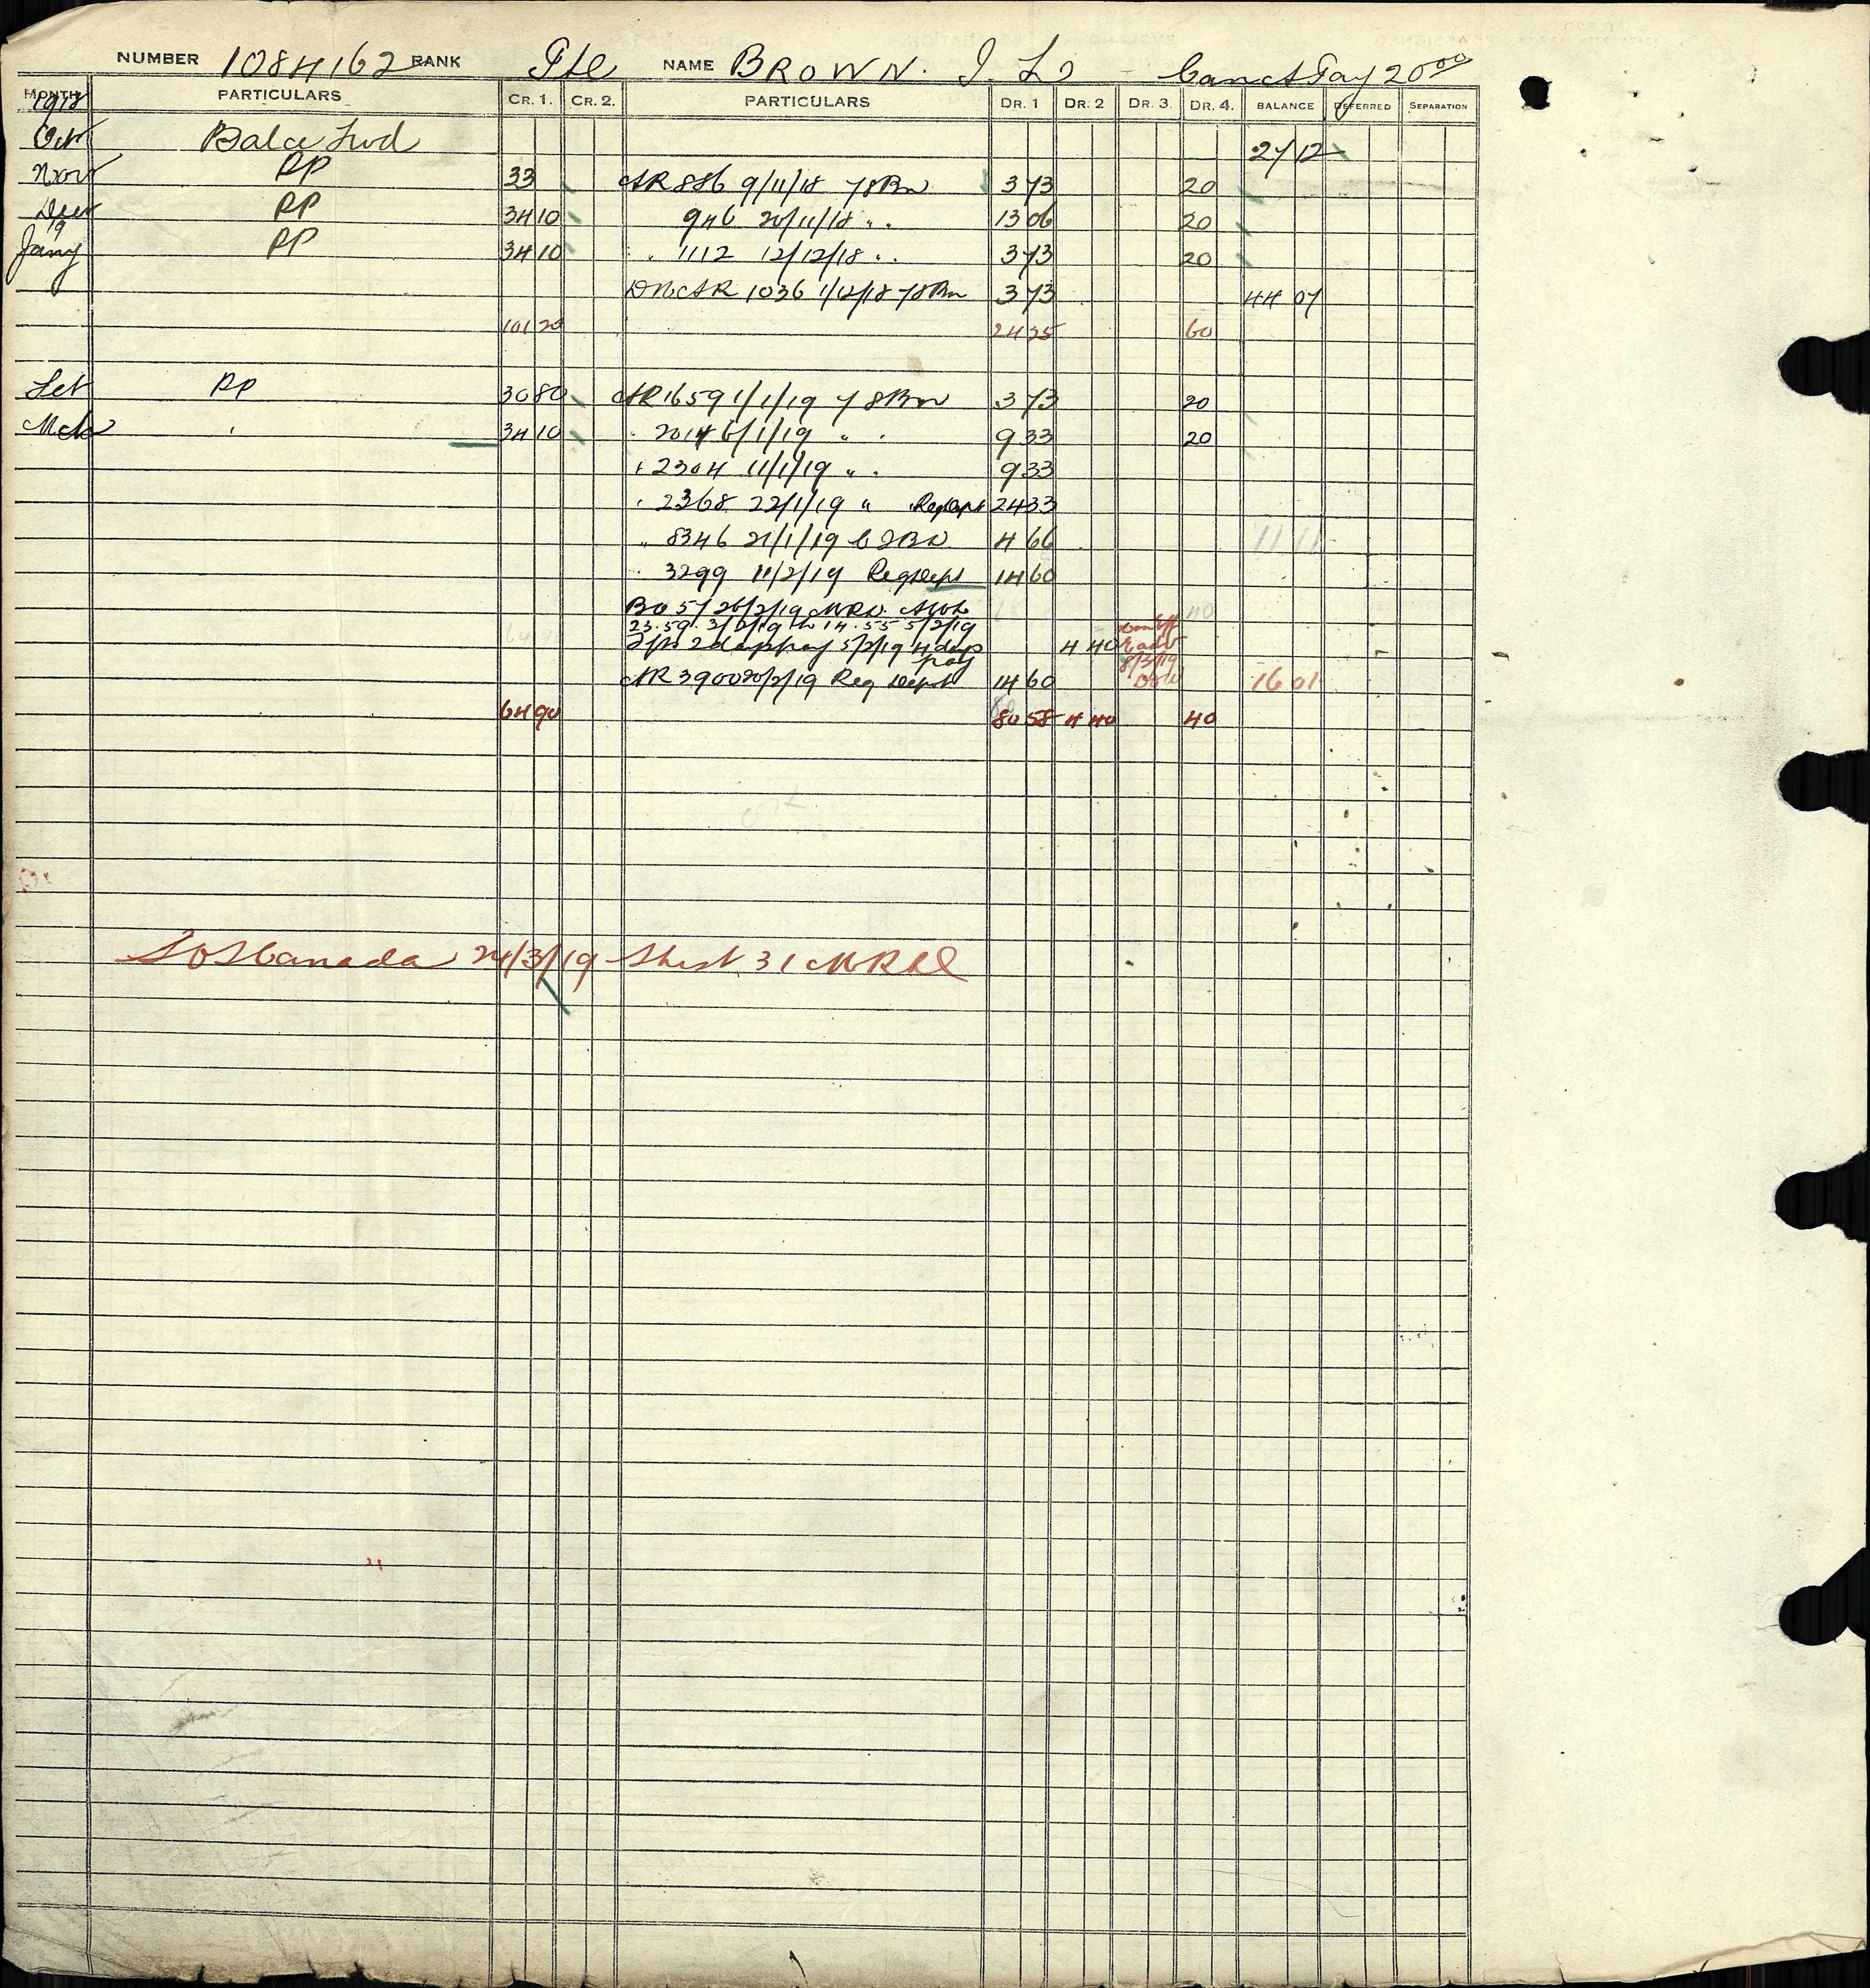 NUMBER 1084162 RANK Pte NAME BROWN. J. L. Canada Pay 20 00
MONTH PARTICULARS CR. 1. CR. 2. PARTICULARS DR. 1 DR. 2 DR. 3. DR. 4. BALANCE DEFERRED SEPARATION
1918
Oct Balce Fwd 27 12
Nov PP 33 AR 886 9/11/18 78Bn 3 73 20
Dec PP 34 10 946 20/11/18 " . 13 06 20
19
Jany PP 34 10 " 1112 12/12/18 " . 3 73 20
AR 1036 1/12/18 78Bn 3 73 44 07
101 20 24 25 60
Feb PP 30 80 AR 1659 1/1/19 78Bn 3 73 20
Mch " 34 10 " 2014 6/1/19 " . 9 33 20
" 2304 11/1/19 " . 9 33
" 2368 22/1/19 " Reg Dept 24 33
" 8346 21/1/19 4 66 11 11
" 3299 11/2/19 Reg Dept 14 60
BO 57 26/2/19 MRD. AWL 40
23.59. 3/2/19 to 14.55 5/2/19
64 90 2 days pay 5/2/19 4 days pay 4 40 8/3/19
AR 3900 20/2/19 Reg Dept 14 60 16 01
64 90 80 58 4 40 40
SOS Canada 24/3/19 Sheet 31 MRD